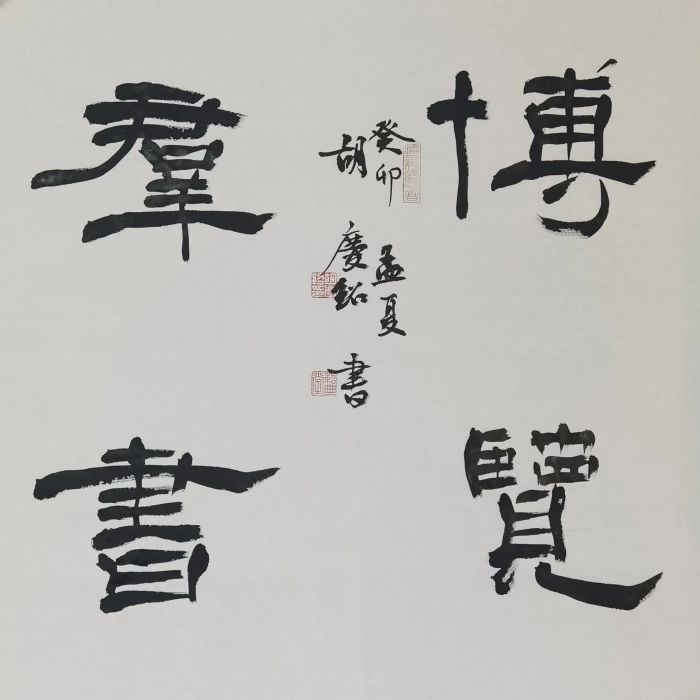 博覽
羣書
癸卯孟夏
胡慶銘書